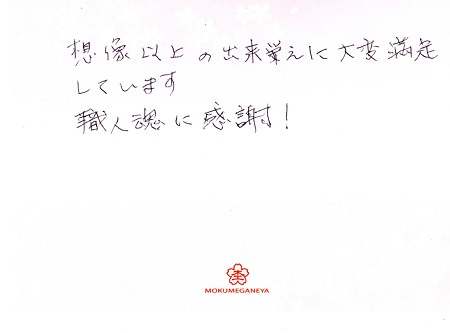 想像以上の出来栄えに大変満足
しています
職人魂に感謝！
MOKUMEGANEYA